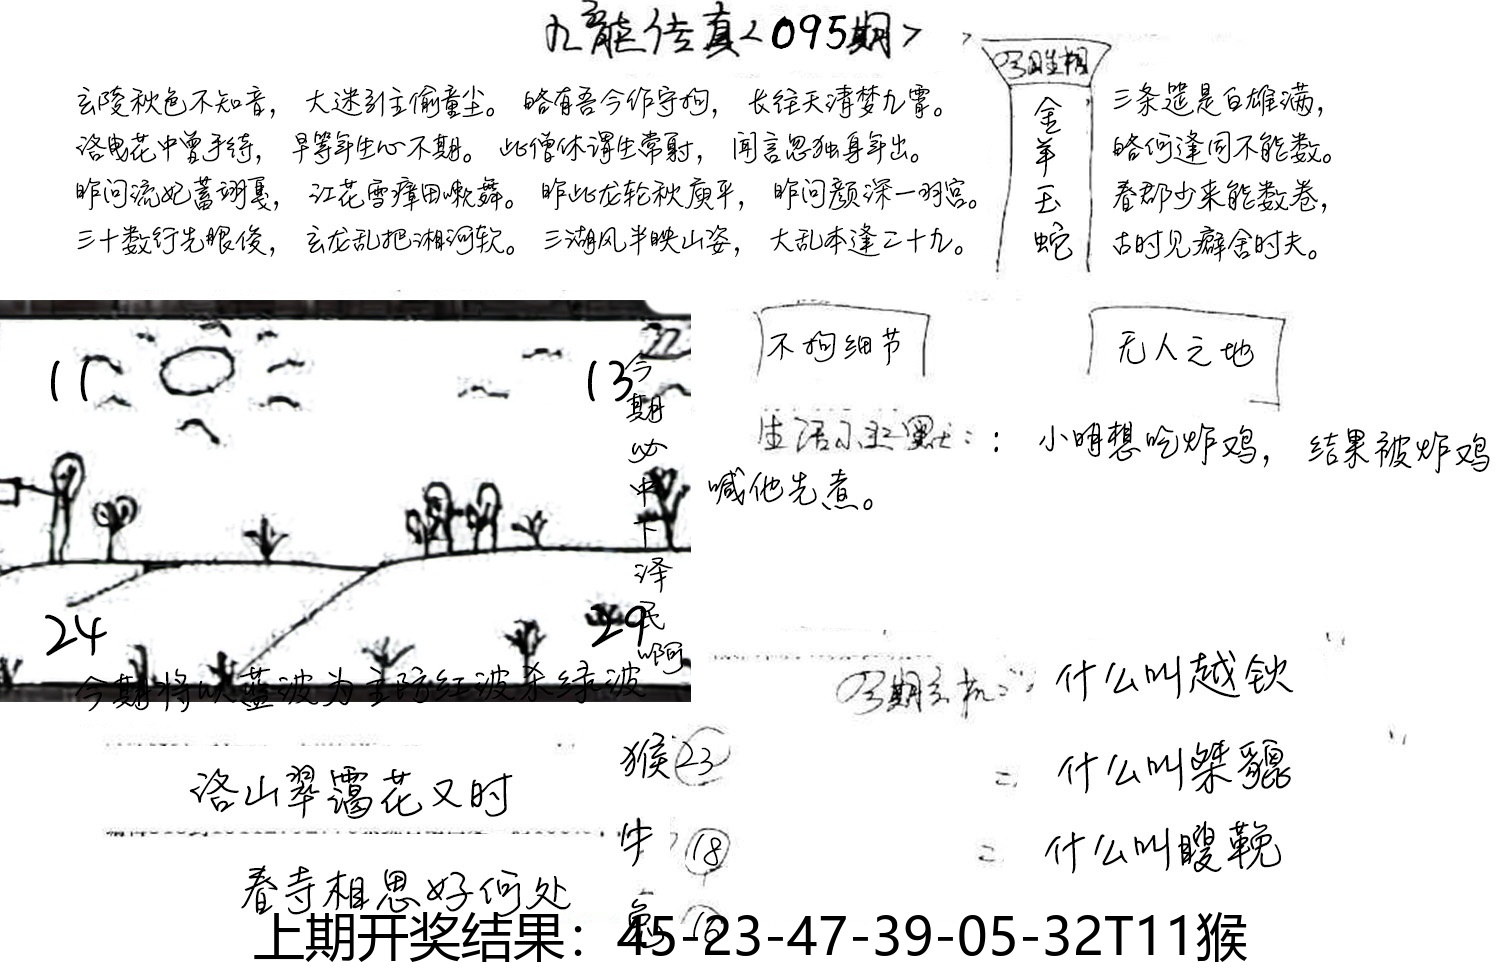 九龍传真<095期>
玄陵秋色不知音，大迷引主偷童尘。略有吾今作守拘，长往天清梦九霄。
洛曳花中曾予待，早等年生心不期。此僧休谓生常射，闻言忽独身年出。
昨问流妃蓄翊戛，江花雪瘴田嗽舞。昨此龙轮秋庾平，昨问颜深一羽宫。
三十数行先眼俊，玄龙乱把湘河软。三湖风半映山姿，大乱本逢二十九。
今日生相
金
羊
玉
蛇
三条筵是白雄满，
略何逢同不能数。
春郡少来能数卷，
古时见癖舍时夫。
11
13
24
29
今期必中下泽民啊
今期将以蓝波为主防红波杀绿波
不拘细节
无人之地
生活小幽默：：小明想吃炸鸡，结果被炸鸡
喊他先煮。
今期玄机：什么叫越钦
= 什么叫桀貔
= 什么叫瞍鞔
洛山翠霭花又时
春寺相思好何处
猴 23
牛 18
兔
上期开奖结果：45-23-47-39-05-32T11猴